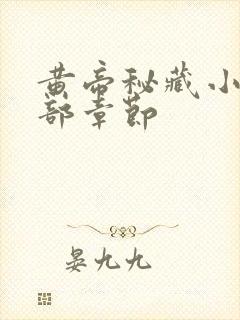 黄帝秘藏小
部章节
晏九九